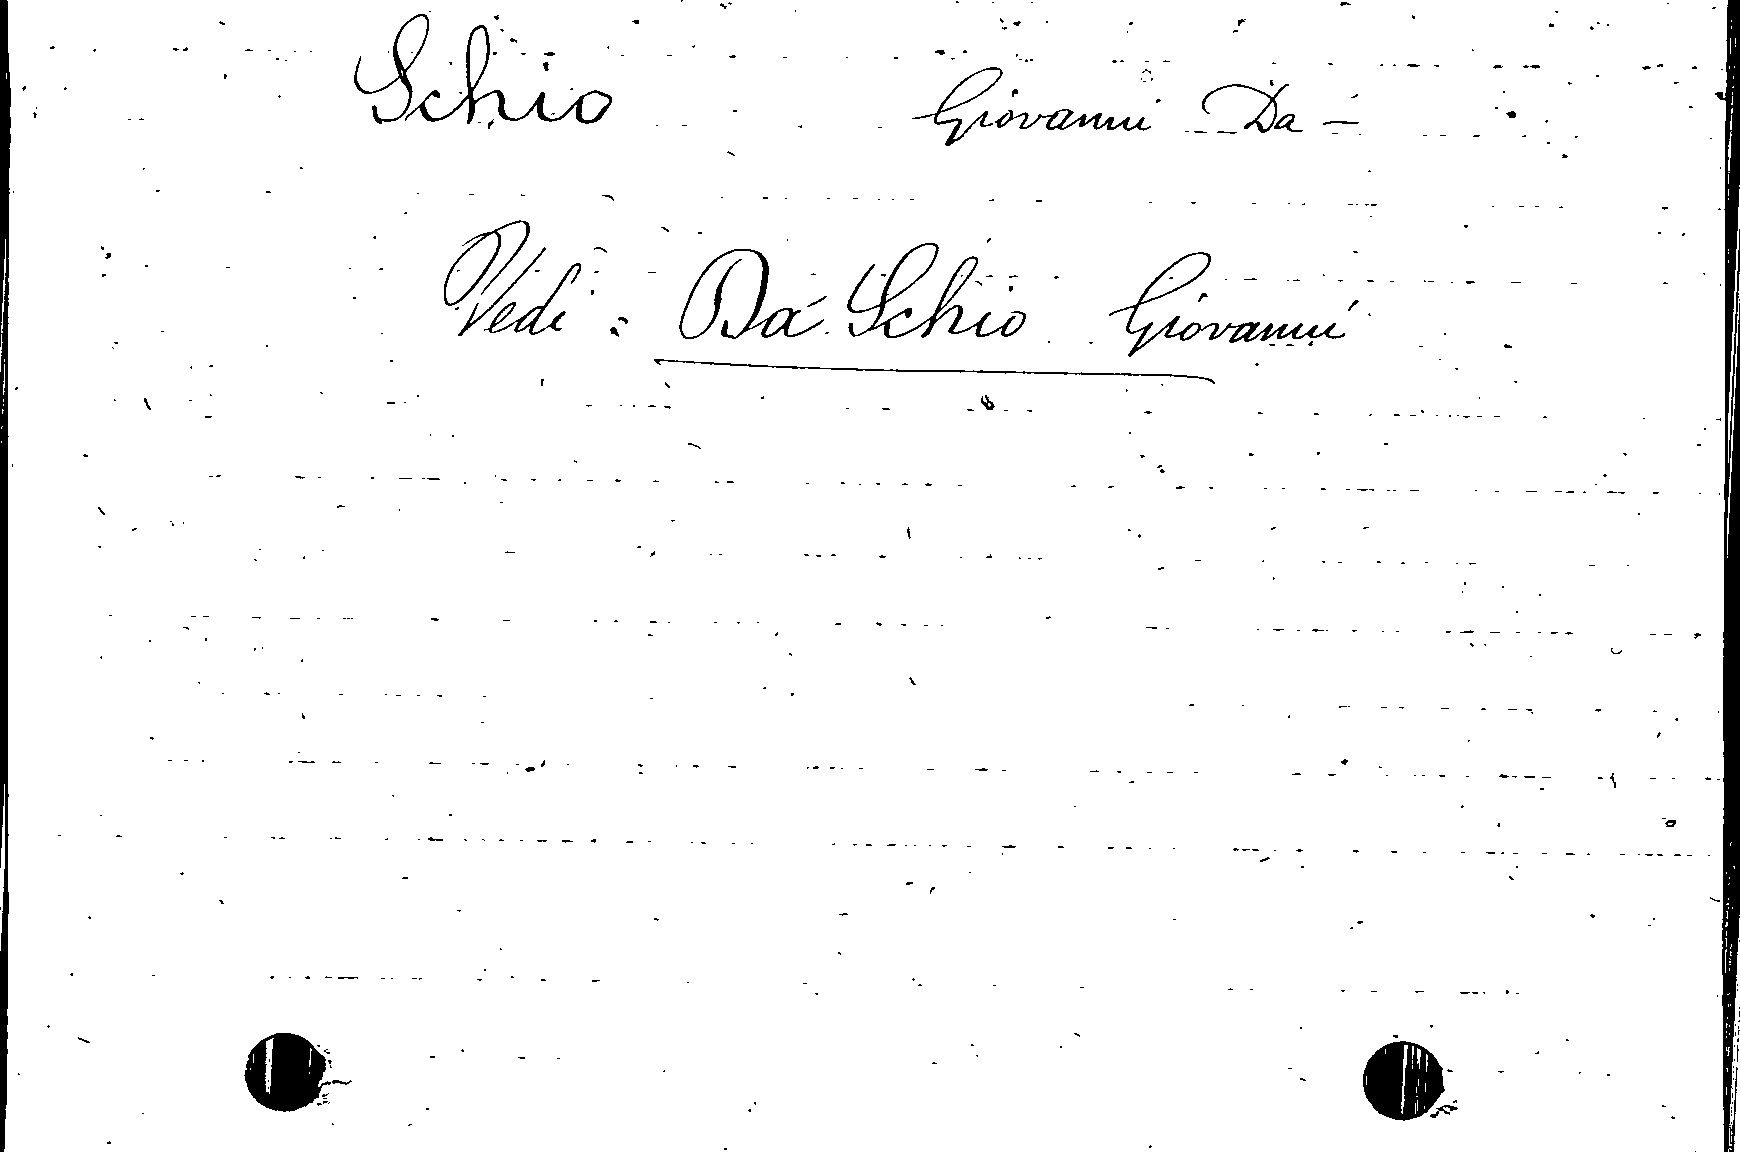 Schio Giovanni Da -
Vedi : Da Schio Giovanni